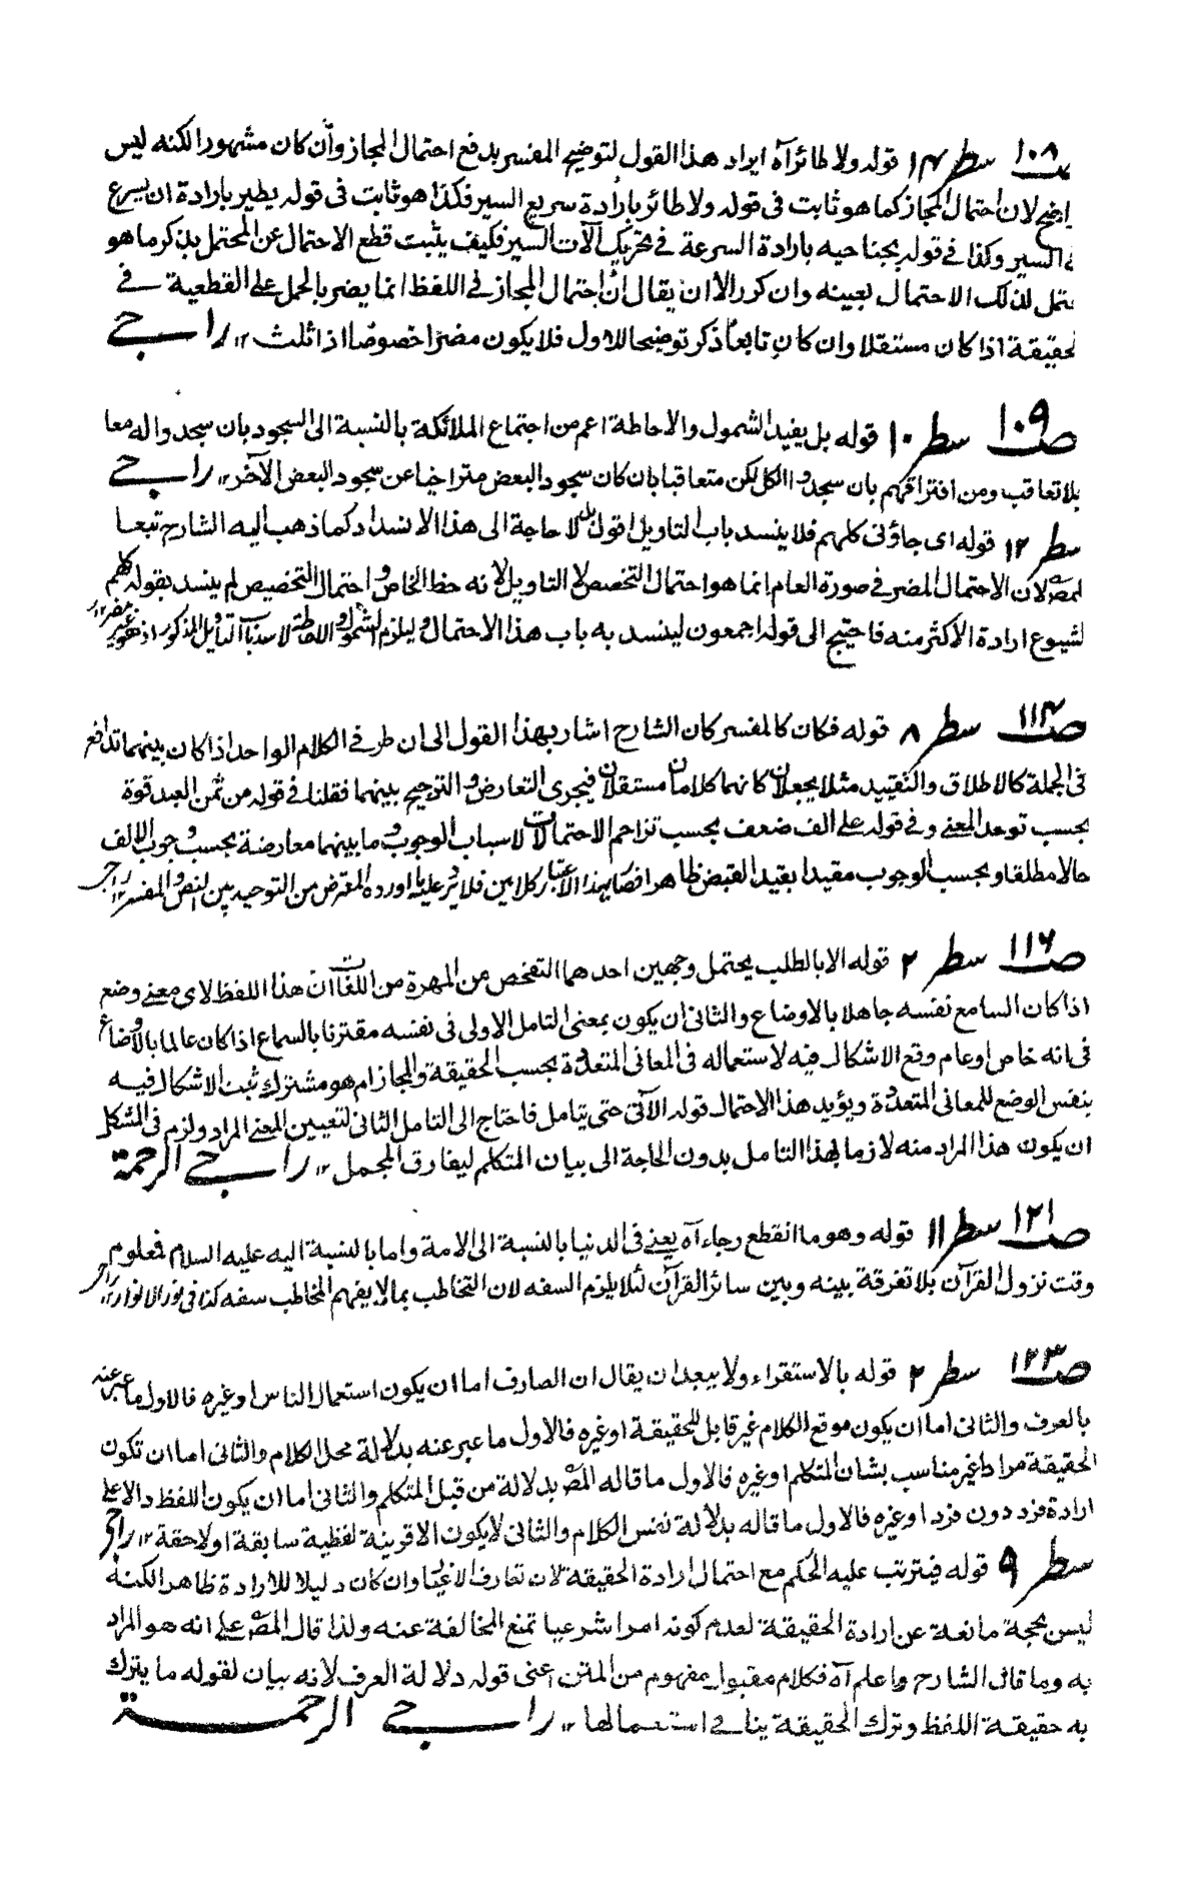 صـ١٠٨ سطر ١٤ قوله ولا طائرآه ايراد هذا القول لتوضيح المفسر بدفع احتمال المجاز وأن كان مشهورا لكنه ليس
اضح لان احتمال المجاز كما هو ثابت فى قوله ولا طائر بارادة سريع السير فكذا هو ثابت فى قوله يطير بارادة ان يسرع
السير وكذا فى قوله بجناحيه بارادة السرعة فى تحريك آلات السير فكيف يثبت قطع الاحتمال عن المحتمل بذكر ما هو
تمل لذلك الاحتمال بعينه وان كرر الا ان يقال ان احتمال المجاز فى اللفظ انما يضر بالحمل على القطعية فى
لحقيقة اذا كان مستقلا وان كان تابعا ذكر توضيحا للاول فلا يكون مضرا خصوصا اذا ثلث ١٢ راجى
صـ١٠٩ سطر ١٠ قوله بل يفيد الشمول والاحاطة اعم من اجتماع الملائكة بالنسبة الى السجود بان سجدوا له معا
بلا تعاقب ومن افتراقهم بان سجدوا الكل لكن متعاقبا بان كان سجود البعض متراخيا عن سجود البعض الآخر ١٢ راجى
سطر ١٢ قوله اى جاؤنى كلهم فلا ينسد باب التاويل اقول بل لا حاجة الى هذا الانسداد كما ذهب اليه الشارح تبعا
لمص لان الاحتمال المضر فى صورة العام انما هو احتمال التخصص لا التاويل لانه حظ الخاص واحتمال التخصيص لم ينسد بقوله كلهم
لشيوع ارادة الاكثر منه فاحتيج الى قوله اجمعون لينسد به باب هذا الاحتمال وليلزم الشمول والاحاطة لا سد باب التاويل المذكور اذ هو غير مضر ١٢
صـ١١٤ سطر ٨ قوله فكان كالمفسر كان الشارح اشار بهذا القول الى ان طرفى الكلام الواحد اذا كان بينهما تدافع
فى الجملة كالاطلاق والتقييد مثلا يجعلان كانهما كلامان مستقلان فيجرى التعارض والترجيح بينهما فقلنا فى قوله من ثمن العبد قوة
بحسب توحد المعنى وفى قوله على الف ضعف بحسب تزاحم الاحتمالات لاسباب الوجوب وما بينهما معارضة بحسب وجوب الالف
حالا مطلقا وبحسب الوجوب مقيدا بقيد القبض ظاهرا فصار بهذا الاعتبار كلامين فلا يرد عليه ما اورده المعترض من التوحيد بين النص والمفسر ١٢ راجى
صـ١١٦ سطر ٢ قوله الا بالطلب يحتمل وجهين احدهما التفحص من المهرة من اللغات ان هذا اللفظ لاى معنى وضع
اذا كان السامع نفسه جاهلا بالاوضاع والثانى ان يكون بمعنى التامل الاولى فى نفسه مقترنا بالسماع اذا كان عالما بالاوضاع
فى انه خاص او عام وقع الاشكال فيه لاستعماله فى المعانى المتعددة بحسب الحقيقة والمجاز ام هو مشترك ثبت الاشكال فيه
بنفس الوضع للمعانى المتعددة ويؤيد هذا الاحتمال قوله الآتى حتى يتامل فاحتاج الى التامل الثانى لتعيين المعنى المراد ولزم فى المشكل
ان يكون هذا المراد منه لازما لهذا التامل بدون الحاجة الى بيان المتكلم ليفارق المجمل ١٢ راجى الرحمة
صـ١٢١ سطر ١١ قوله وهو ما انقطع رجاءه آه يعنى فى الدنيا بالنسبة الى الامة واما بالنسبة اليه عليه السلام فمعلوم
وقت نزول القرآن بلا تفرقة بينه وبين سائر القرآن لئلا يلزم السفه لان التخاطب بما لا يفهم المخاطب سفه كذا فى نور الانوار ١٢ راجى
صـ١٢٣ سطر ٢ قوله بالاستقراء ولا يبعد ان يقال ان الصارف اما ان يكون استعمال الناس او غيره فالاول ما عبر عنه
بالعرف والثانى اما ان يكون موقع الكلام غير قابل للحقيقة او غيره فالاول ما عبر عنه بدلالة محل الكلام والثانى اما ان تكون
الحقيقة مرادا غير مناسب بشان المتكلم او غيره فالاول ما قاله المص بدلالة من قبل المتكلم والثانى اما ان يكون اللفظ دالا على
ارادة فرد دون فرد او غيره فالاول ما قاله بدلالة نفس الكلام والثانى لا يكون الا قرينة لفظية سابقة او لاحقة ١٢ راجى
سطر ٩ قوله فيترتب عليه الحكم مع احتمال ارادة الحقيقة لان تعارف وان كان دليلا للارادة ظاهرا لكنه
ليس بحجة مانعة عن ارادة الحقيقة لعدم كونه امرا شرعيا تمنع المخالفة عنه ولذا قال المص على انه هو المراد
به وما قال الشارح واعلم آه فكلام مقبول بمفهوم من المتن اعنى قوله دلالة العرف لانه بيان لقوله ما يترك
به حقيقة اللفظ وترك الحقيقة ينافى استعمالها ١٢ راجى الرحمة